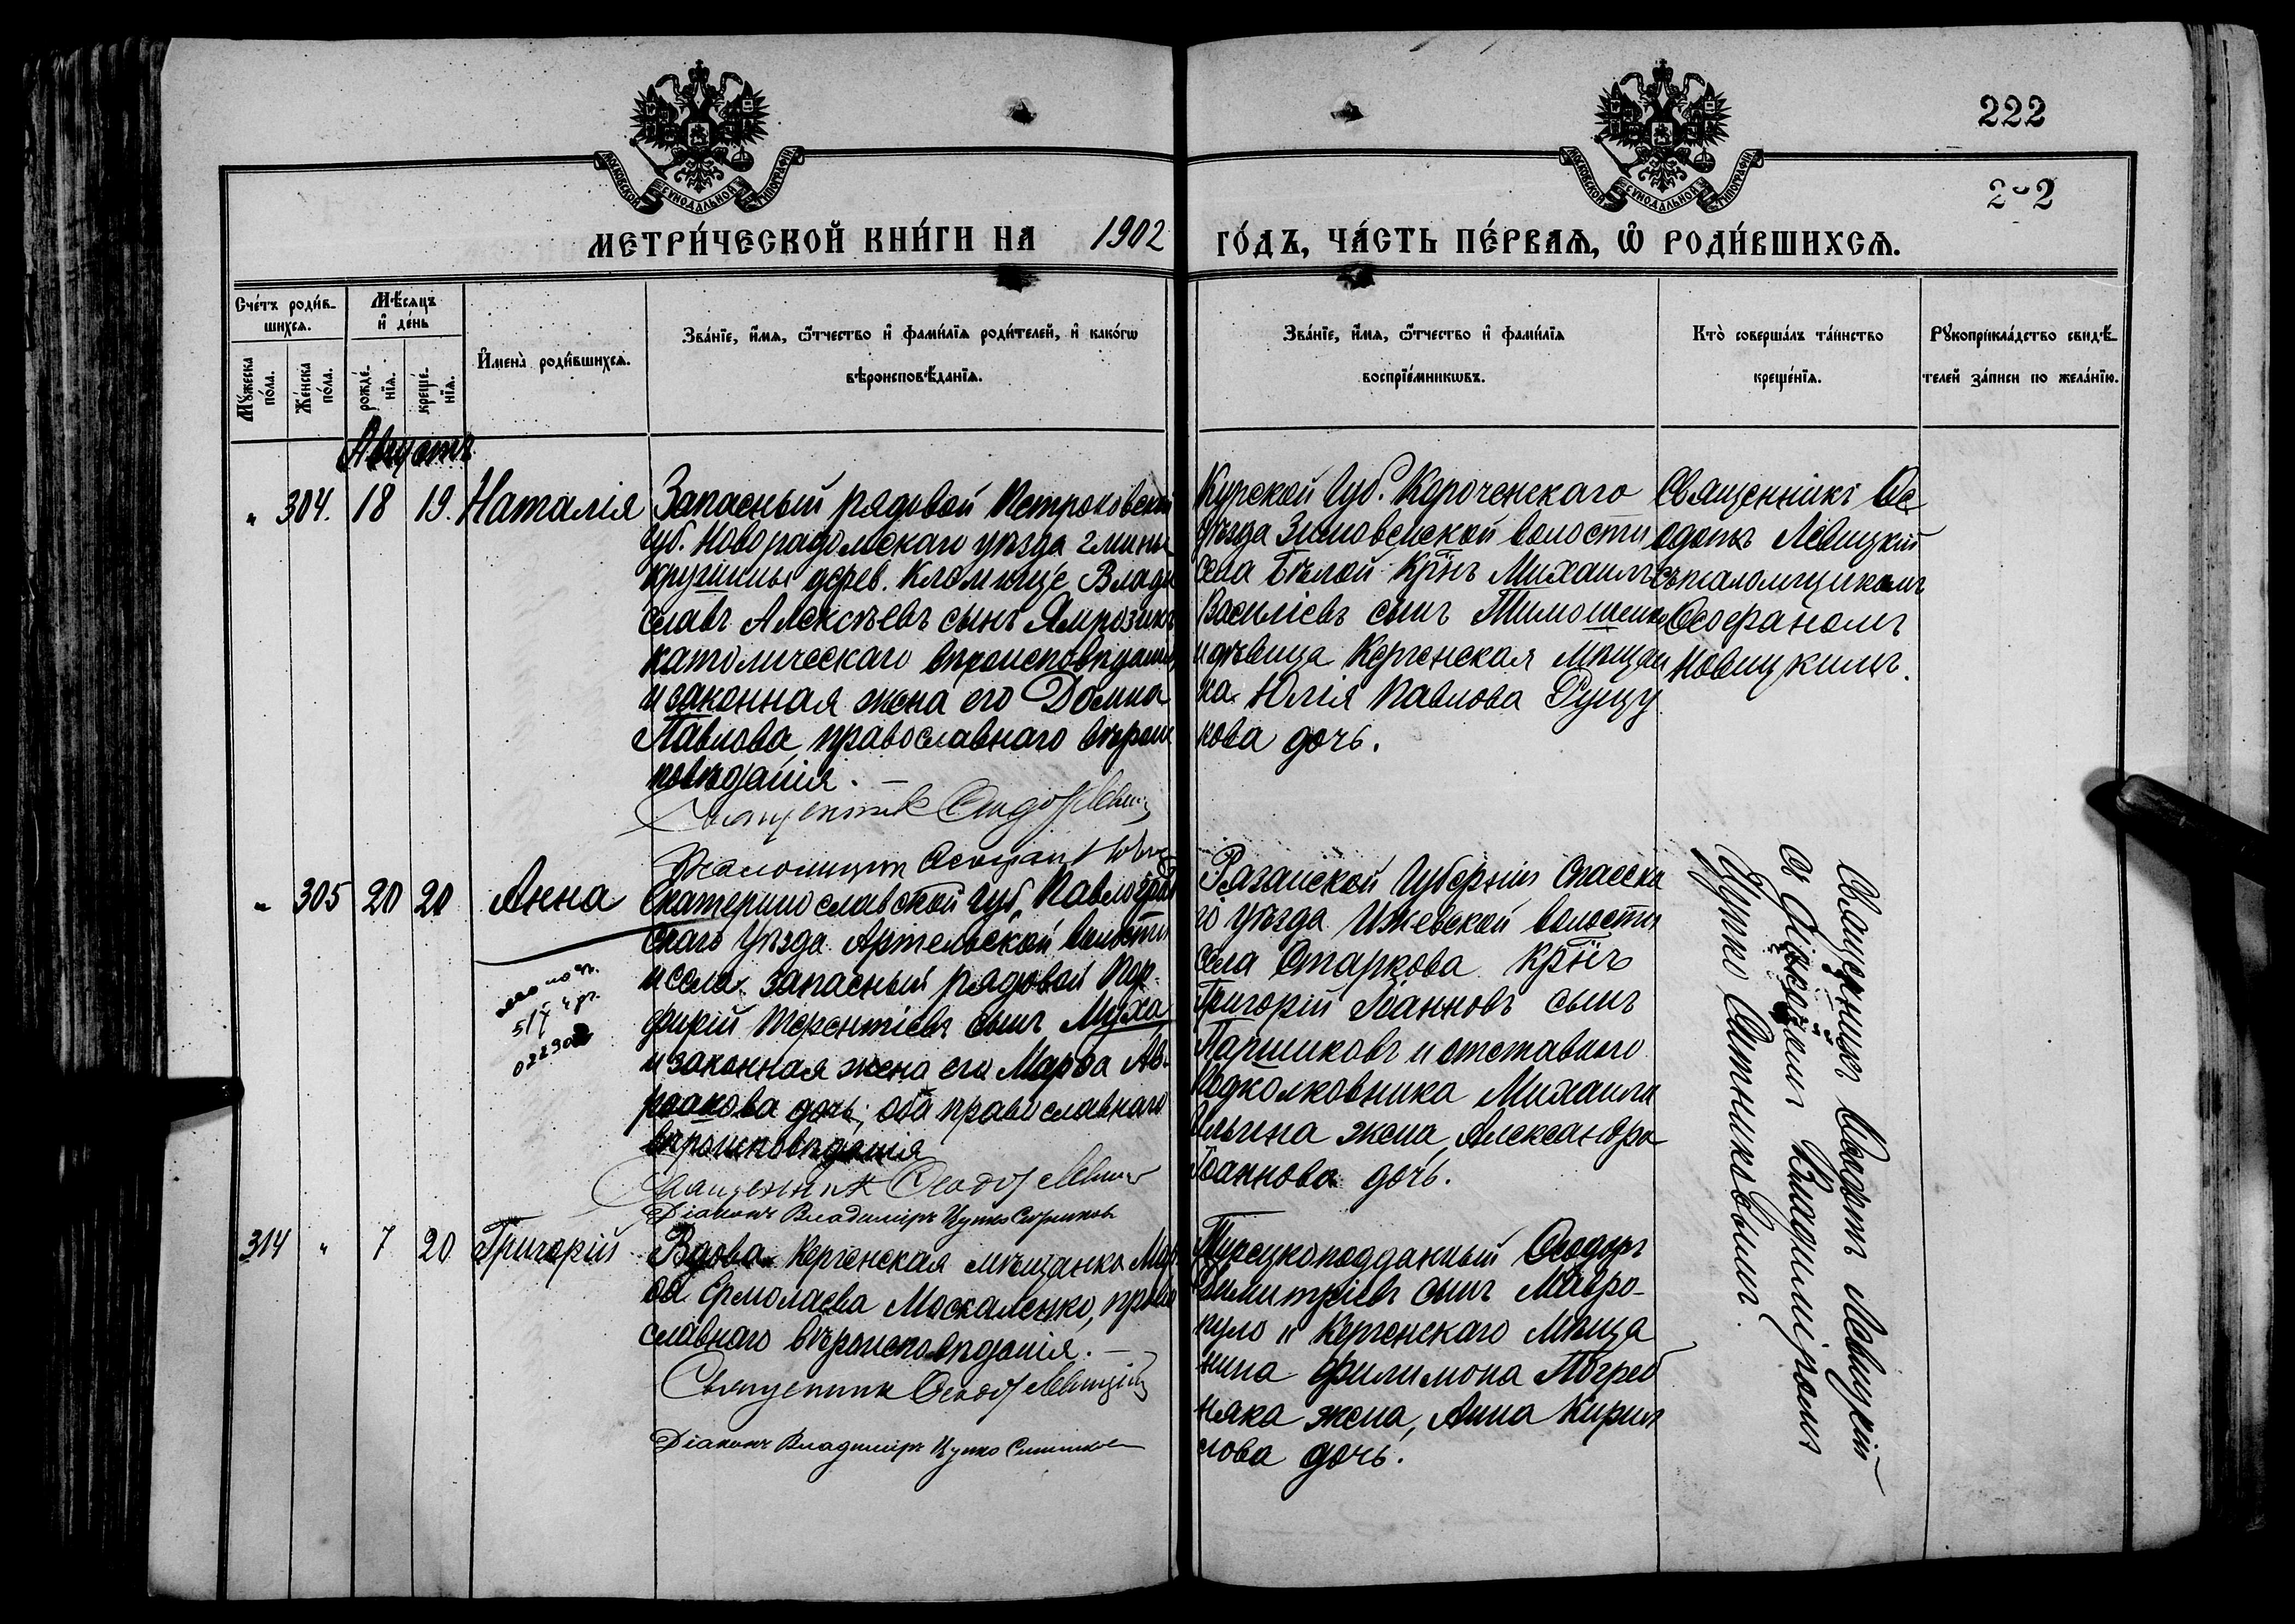 222
2-2
МОСКОВСКОЙ СѴНОДАЛЬНОЙ ТИПОГРАФІИ
МОСКОВСКОЙ СѴНОДАЛЬНОЙ ТИПОГРАФІИ
МЕТРИ́ЧЕСКОЙ КНИ́ГИ НА 1902 ГО́ДЪ, ЧА́СТЬ ПЕ́РВАѦ, Ѽ РОДИ́ВШИХСѦ.
Сче́тъ роди́в-
шихсѧ.
Мѣ́сѧцъ
и҆ де́нь
Мꙋ́жеска
по́ла.
Же́нска
по́ла.
рожде́-
нїѧ.
креще́-
нїѧ.
И҆мена̀ роди́вшихсѧ.
Зва́нїе, и҆́мѧ, ѻ҆́тчество и҆ фами́лїѧ роди́телей, и҆ како́гѡ
вѣроисповѣ́данїѧ.
Зва́нїе, и҆́мѧ, ѻ҆́тчество и҆ фами́лїѧ
воспрїе́мникѡвъ.
Кто̀ соверша́лъ та́инство
креще́нїѧ.
Рꙋкоприкла́дство свидѣ́-
телей за́писи по жела́нїю.
Августъ
" 304. 18 19. Наталія
Запасный рядовой Петроковской
Губ. Новорадомскаго уѣзда гмины
Кружины дерев. Кломнице Влади
славъ Алексѣевъ сынъ Ямрозикъ
католическаго вѣроисповѣданія
и законная жена его Домна
Павлова, православнаго вѣроис
повѣданія. —
Священникъ Ѳеодотъ Левиц
Псаломщикъ Ѳеофан Нов
Курской Губ. Короченскаго
уѣзда Зимовенской волости
села Бѣлой Крнъ Михаилъ
Василіевъ сынъ Тимошенко
и дѣвица Керченская мѣщан
ка Юлія Павлова Рущу
кова дочь.
Священникъ Ѳе
одотъ Левицкій
съ псаломщикомъ
Ѳеофаномъ
Новицкимъ.
" 305 20 20 Анна
5/V
02290
Екатеринославской губ. Павлоград
скаго уѣзда Артельской волости
и села запасный рядовой Пор
фирій Терентіевъ сынъ Муха
и законная жена его Марѳа Ав-
раамова дочь; оба православнаго
вѣроисповѣданія
Священникъ Ѳеодотъ Левиц
Діаконъ Владиміръ Цупко Ситниковъ
Рязанской Губерніи Спасска
го уѣзда Ижевской волости
села Старкова Крнъ
Григорій Іоанновъ сынъ
Паршиковъ и отставного
Подполковника Михаила
Ильина жена, Александра
Іоаннова дочь.
Священникъ Ѳеодотъ Левицкій
съ Діакономъ Владиміромъ
Цупко Ситниковымъ.
314 " 7 20 Григорій
Вдова Керченская мѣщанка Мар
ѳа Ермолаева Москаленко, право
славнаго вѣроисповѣданія. —
Священникъ Ѳеодотъ Левицкій
Діаконъ Владиміръ Цупко Ситников
Турецкоподданный Ѳеодоръ
Димитріевъ сынъ Мавро-
пуло и Керченскаго мѣща
нина Филимона Погреб
няка жена, Анна Кирил
лова дочь.